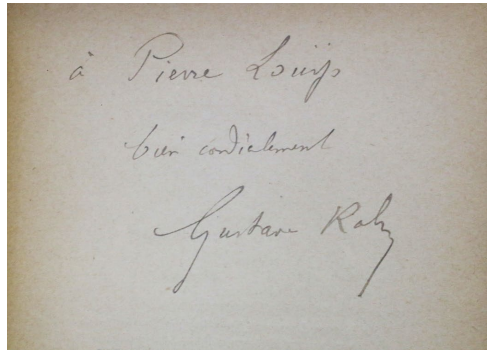 à Pierre Louÿs
bien cordialement
Gustave Kahn